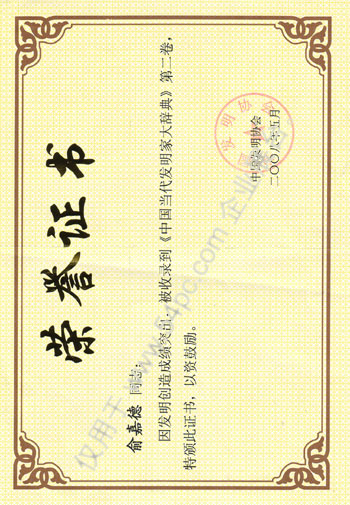 荣誉证书
俞嘉德 同志:
因发明创造成绩突出,被收录到《中国当代发明家大辞典》第二卷,
特颁此证书,以资鼓励。
中国发明协会
二〇〇八年五月